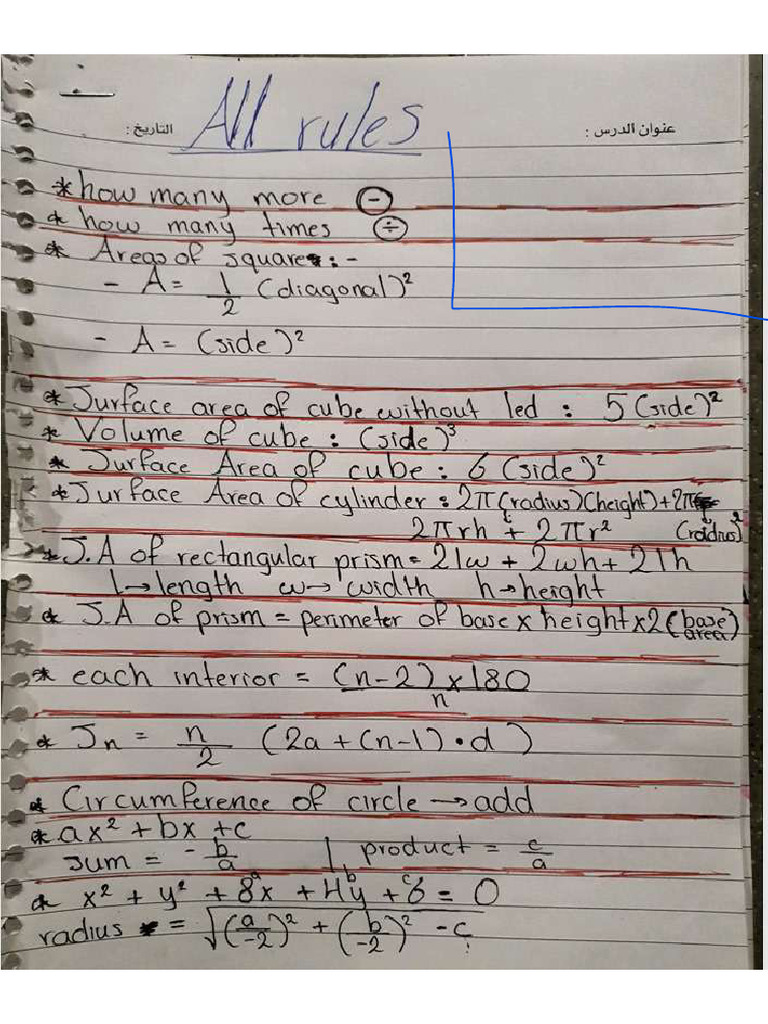 عنوان الدرس :
التاريخ :
All rules
* how many more ⊖
* how many times ⊕
* Areas of square :-
- A = 1/2 (diagonal)²
- A = (side)²
* Surface area of cube without led : 5 (side)²
* Volume of cube : (side)³
* Surface Area of cube : 6 (side)²
* Surface Area of cylinder : 2π(radius)(height)+2π
2πrh + 2πr² (radius)²
* S.A of rectangular prism = 2lw + 2wh + 2lh
l → length w → width h → height
* S.A of prism = perimeter of base x height x 2 (base area)
* each interior = (n-2) x 180 / n
* Sn = n/2 (2a + (n-1) • d )
* Circumference of circle → add
* ax² + bx + c
sum = - b/a | product = c/a
* x² + y² + 8x + 4y + 6 = 0
a b c
radius = √(a/-2)² + (b/-2)² - c